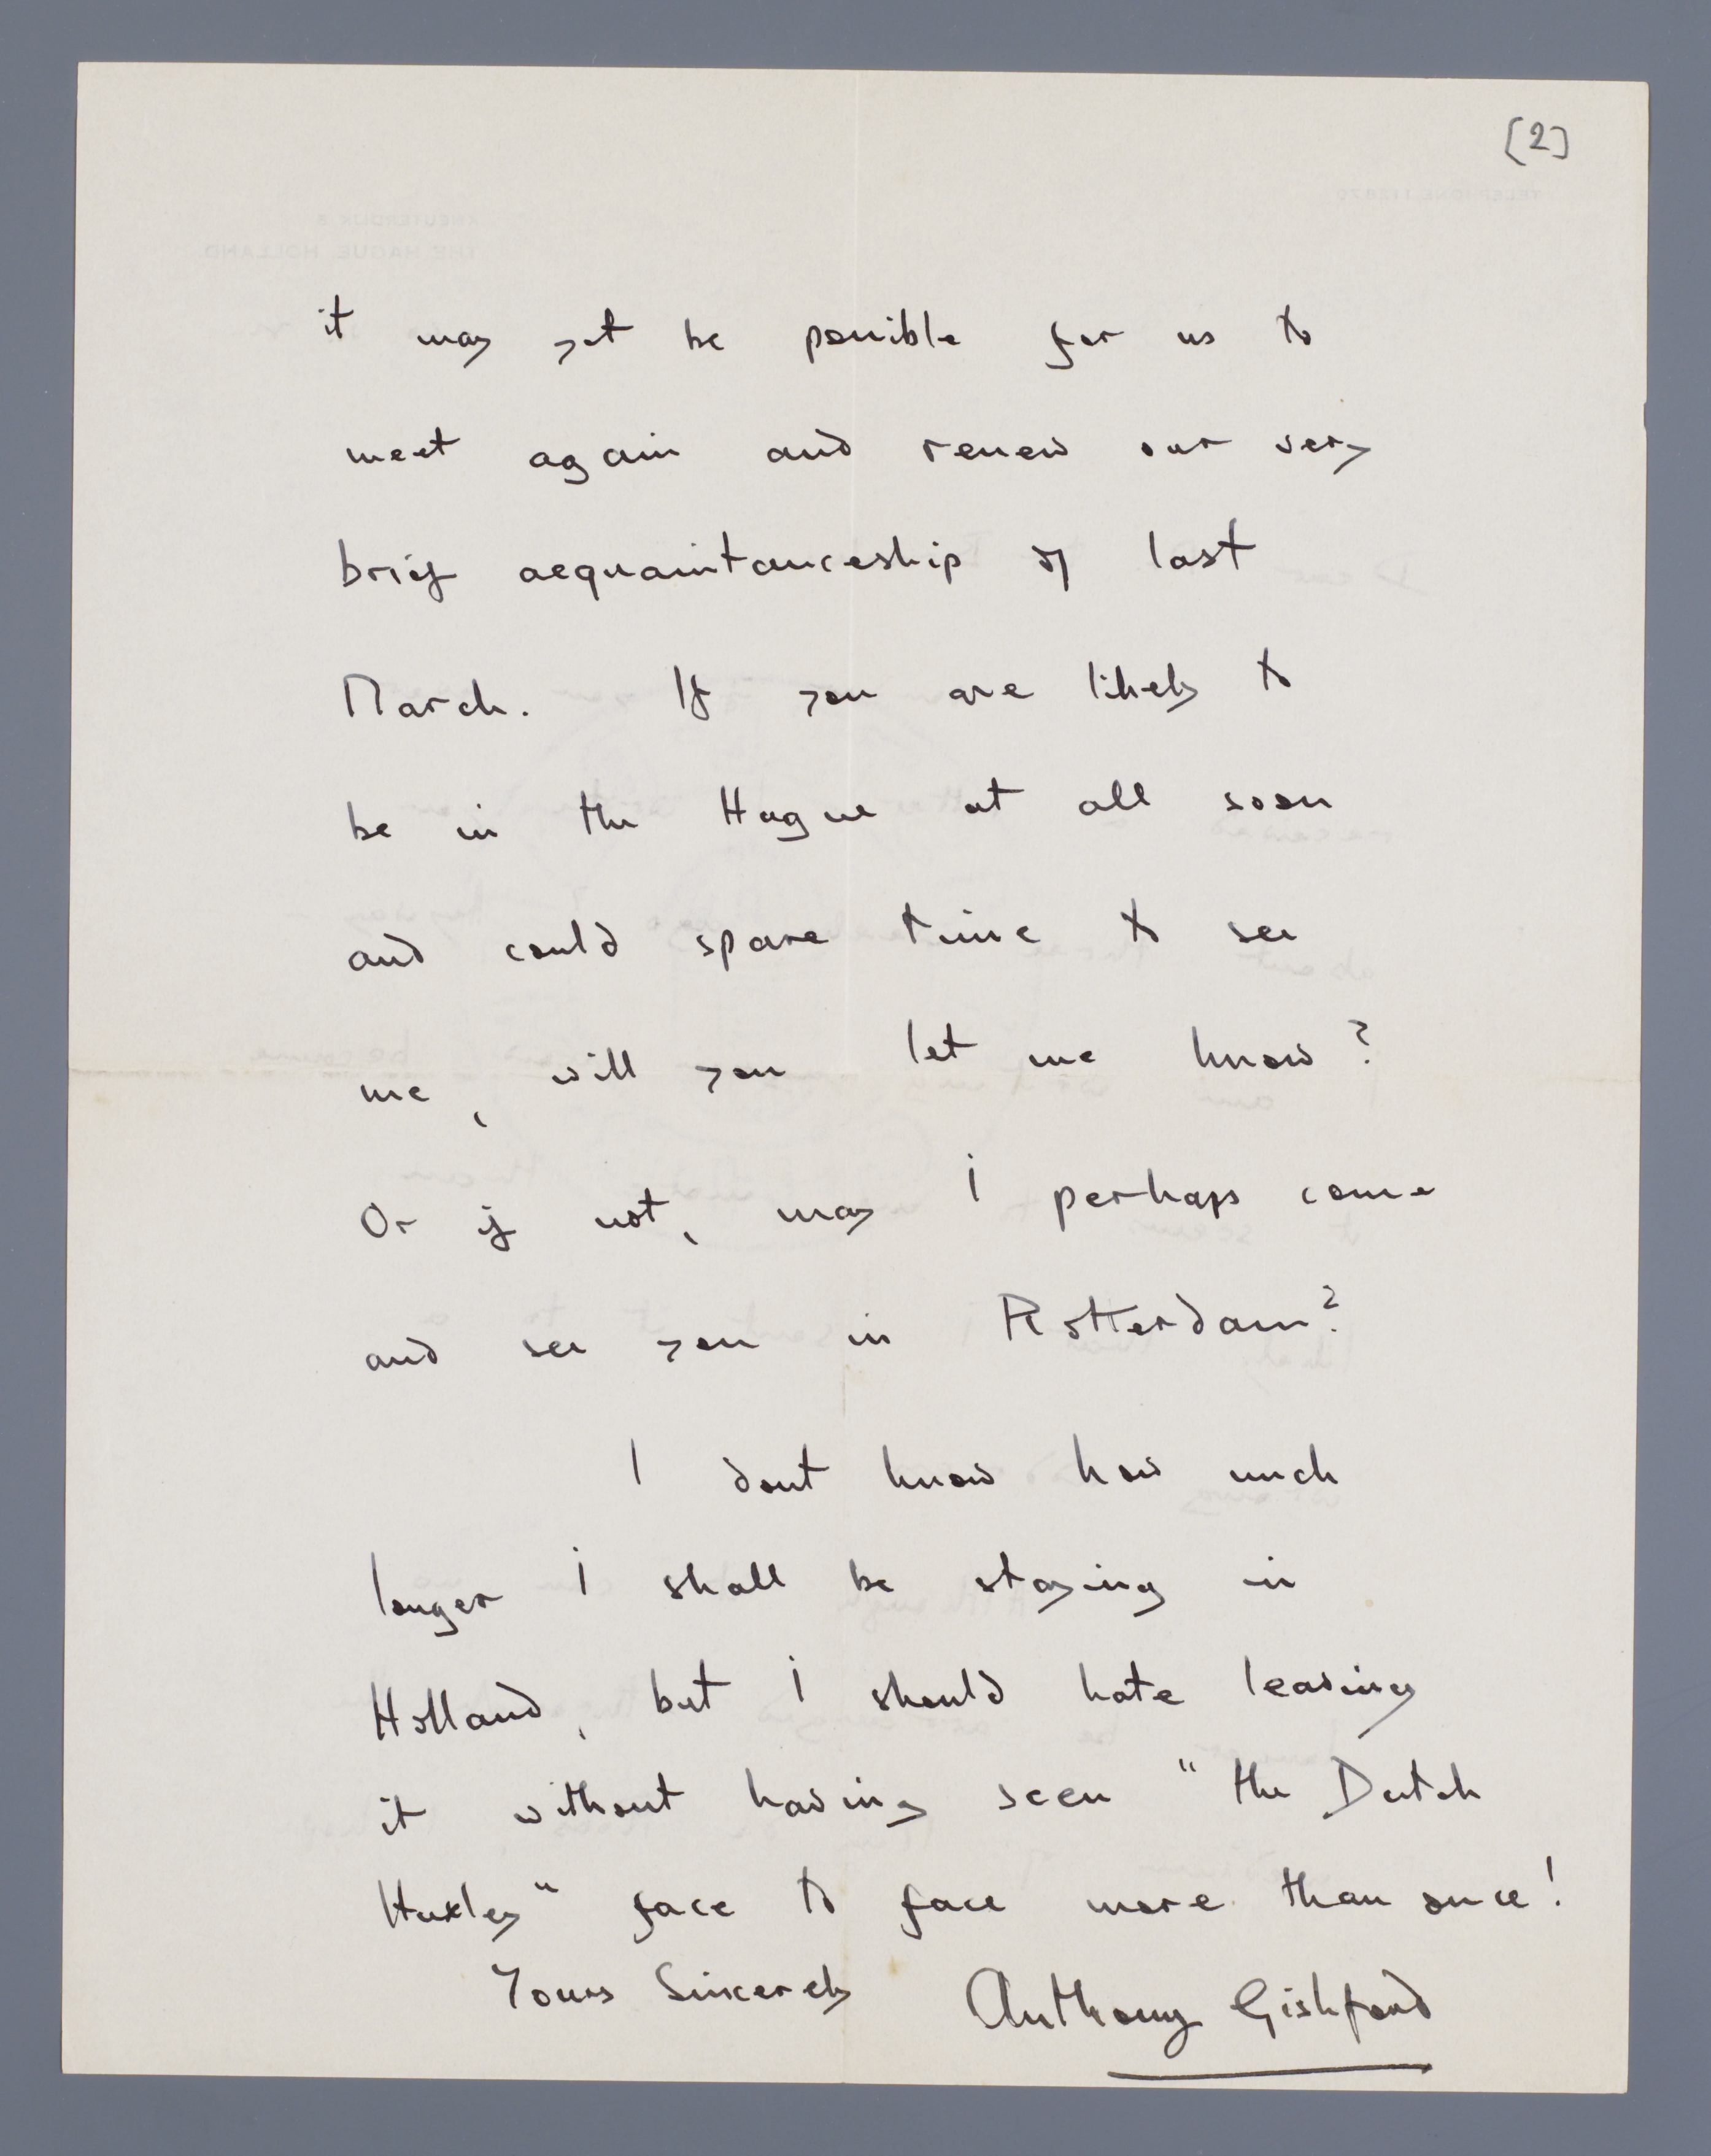 [2]
it may yet be possible for us to
meet again and renew our very
brief acquaintanceship of last
March. If you are likely to
be in the Hague at all soon
and could spare time to see
me, will you let me know?
Or if not, may I perhaps come
and see you in Rotterdam?
I dont know how much
longer I shall be staying in
Holland, but I should hate leaving
it without having seen "the Dutch
Huxley" face to face more than once!
Yours Sincerely Anthony Gishford